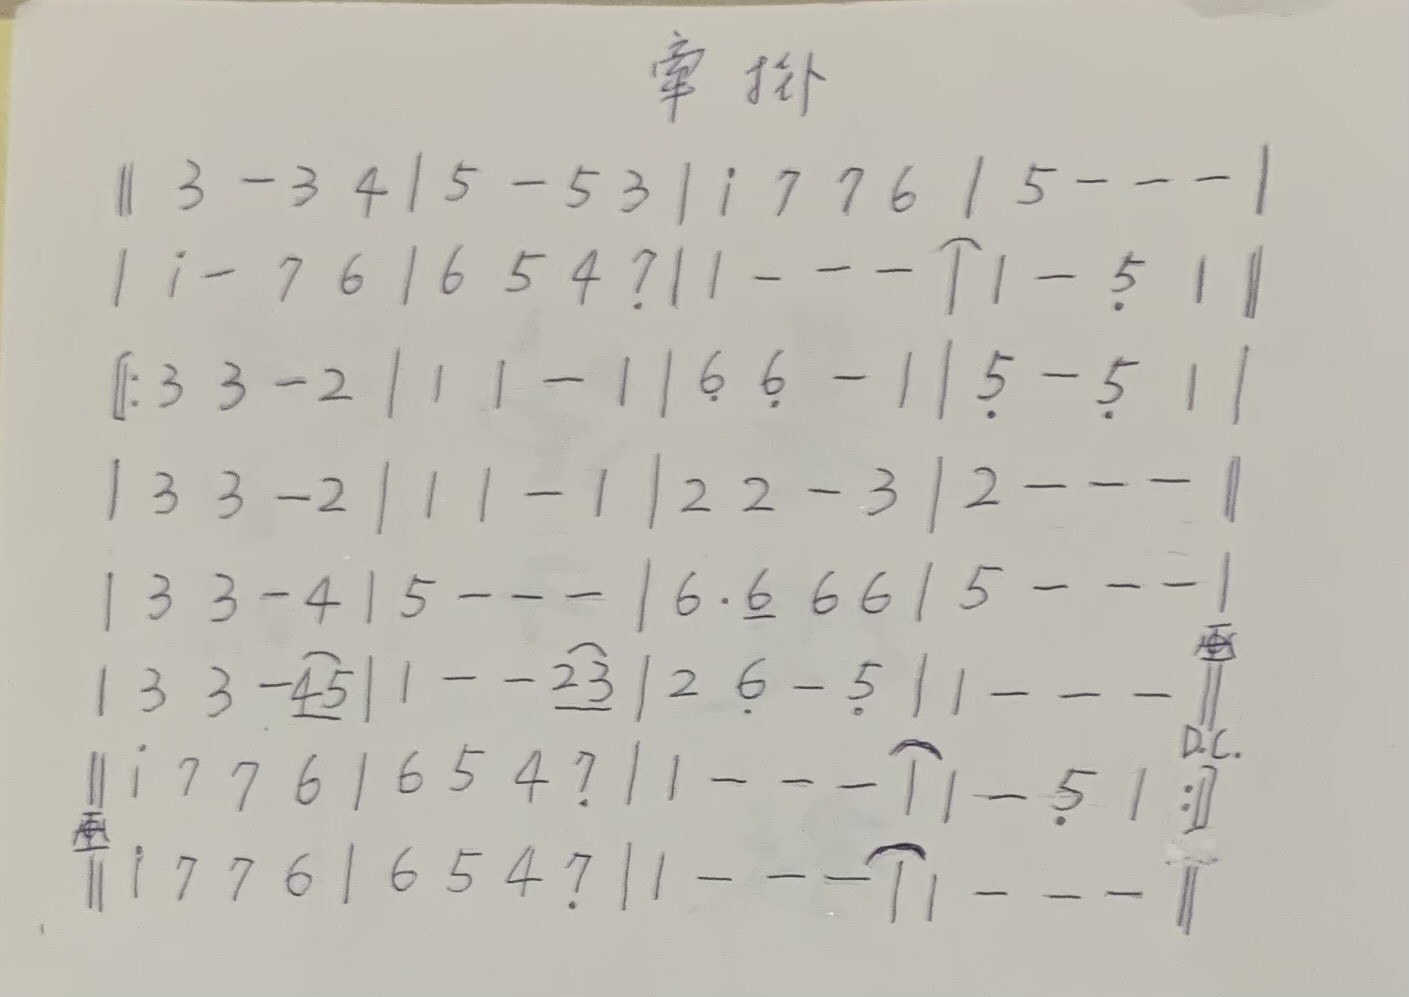 牽掛
‖ 3 - 3 4 | 5 - 5 3 | i 7 7 6 | 5 - - - |
| i - 7 6 | 6 5 4 7̣ | 1 - - - | 1 - 5̣ 1 ‖
‖: 3 3 - 2 | 1 1 - 1 | 6̣ 6̣ - 1 | 5̣ - 5̣ 1 |
| 3 3 - 2 | 1 1 - 1 | 2 2 - 3 | 2 - - - ‖
| 3 3 - 4 | 5 - - - | 6 · 6 6 6 | 5 - - - |
| 3 3 - 45 | 1 - - 23 | 2 6̣ - 5̣ | 1 - - - ‖
D.C.
‖ i 7 7 6 | 6 5 4 7̣ | 1 - - - | 1 - 5̣ 1 :‖
‖ i 7 7 6 | 6 5 4 7̣ | 1 - - - | 1 - - - ‖